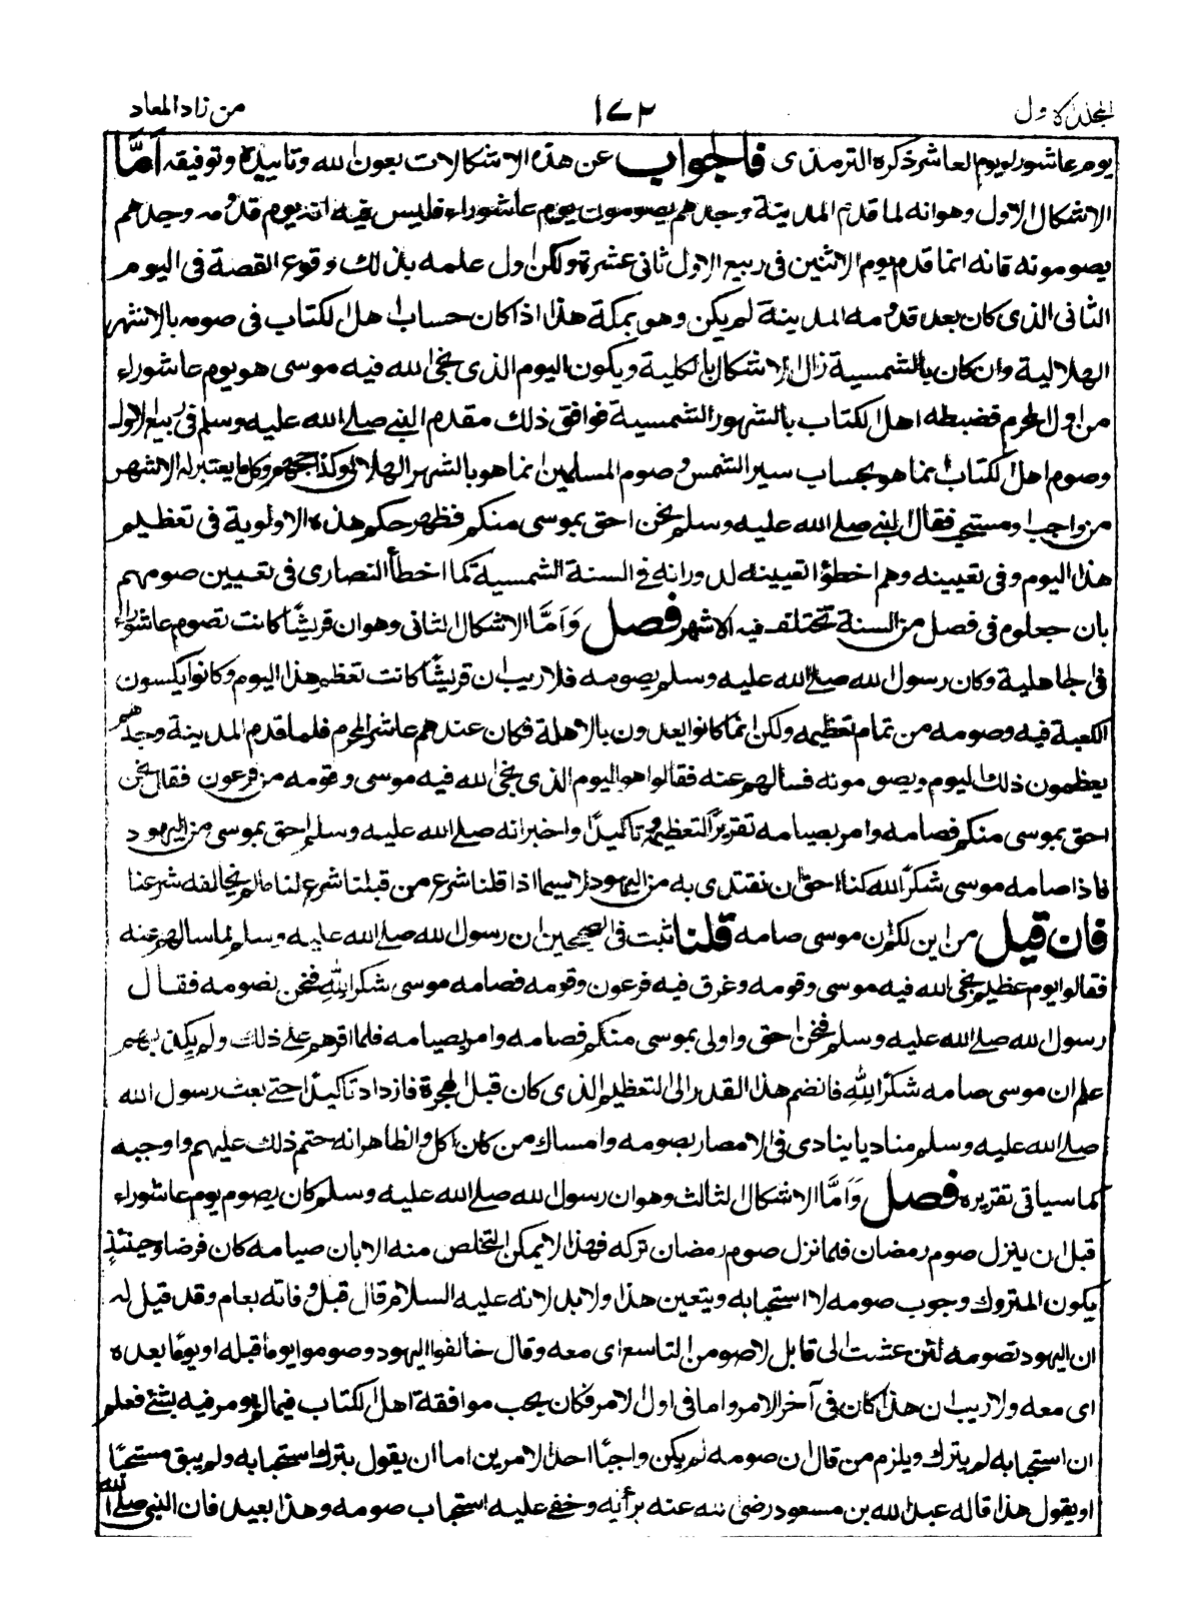 المجلد الاول ١٧٢ من زاد المعاد
يوم عاشور لويوم العاشر ذكره الترمذى فالجواب عن هذه الاشكالات بعون الله وتاييده وتوفيقه اَمَّا
الاشكال الاول وهوانه لما قدم المدينة وجدهم يصومون يوم عاشوراء فليس فيه انه يوم قدومه وجدهم
يصومونه فانه انما قدم يوم الاثنين فى ربيع الاول ثانى عشرة ولكن اول علمه بذلك وقوع القصة فى اليوم
الثانى الذى كان بعد قدومه المدينة لم يكن وهو بمكة هذا اذا كان حساب اهل الكتاب فى صومه بالاشهر
الهلالية وان كان بالشمسية زال الاشكال بالكلية ويكون اليوم الذى نجى الله فيه موسى هو يوم عاشوراء
من اول المحرم فضبطه اهل الكتاب بالشهور الشمسية فوافق ذلك مقدم النبى صلى الله عليه وسلم فى ربيع الاول
وصوم اهل الكتاب انما هو بحساب سير الشمس وصوم المسلمين انما هو بالشهر الهلالى وكذا حجهم وكل ما يعتبر له الاشهر
من واجب او مستحب فقال النبى صلى الله عليه وسلم نحن احق بموسى منكم فظهر حكم هذه الاولوية فى تعظيم
هذا اليوم وفى تعيينه وهم اخطؤا تعيينه لدورانه فى السنة الشمسية كما اخطأ النصارى فى تعيين صومهم
بان جعلوه فى فصل من السنة تختلف فيه الاشهر فصل وَاَمَّا الاشكال الثانى وهو ان قريشًا كانت تصوم عاشوراء
فى الجاهلية وكان رسول الله صلى الله عليه وسلم يصومه فلا ريب ان قريشًا كانت تعظم هذا اليوم وكانوا يكسون
الكعبة فيه وصومه من تمام تعظيمه ولكن انما كانوا يعدون بالاهلة فكان عندهم عاشر المحرم فلما قدم المدينة وجدهم
يعظمون ذلك اليوم ويصومونه فسالهم عنه فقالوا هو اليوم الذى نجى الله فيه موسى وقومه من فرعون فقال نحن
احق بموسى منكم فصامه وامر بصيامه تقريرًا لتعظيمه وتاكيدًا واخبر انه صلى الله عليه وسلم احق بموسى من اليهود
فاذا صامه موسى شكرًا لله كنا احق ان نقتدى به من اليهود لاسيما اذا قلنا شرع من قبلنا شرع لنا مالم يخالفه شرعنا
فان قيل من اين لكم ان موسى صامه قلنا ثبت فى الصحيحين ان رسول الله صلى الله عليه وسلم لما سالهم عنه
فقالوا يوم عظيم نجى الله فيه موسى وقومه وغرق فيه فرعون وقومه فصامه موسى شكرا لله فنحن نصومه فقال
رسول الله صلى الله عليه وسلم فنحن احق واولى بموسى منكم فصامه وامر بصيامه فلما اقرهم على ذلك ولم يكذبهم
علم ان موسى صامه شكرًا لله فانضم هذا القدر الى التعظيم الذى كان قبل الهجرة فازداد تاكيدًا حتى بعث رسول الله
صلى الله عليه وسلم مناديا ينادى فى الامصار بصومه وامساك من كان اكل والظاهر انه حتم ذلك عليهم واوجبه
كما سياتى تقريره فصل وَاَمَّا الاشكال الثالث وهو ان رسول الله صلى الله عليه وسلم كان يصوم يوم عاشوراء
قبل ان ينزل صوم رمضان فلما نزل صوم رمضان تركه فهذا لا يمكن التخلص منه الا بان صيامه كان فرضا وحينئذٍ
يكون المتروك وجوب صومه لا استحبابه ويتعين هذا ولابد لانه عليه السلام قال قبل وفاته بعام وقد قيل له
ان اليهود تصومه لئن عشت الى قابل لاصومن التاسع اى معه وقال خالفوا اليهود وصوموا يوما قبله او يومًا بعده
اى معه ولا ريب ان هذا كان فى آخر الامر واما فى اول الامر فكان يحب موافقة اهل الكتاب فيما لم يومر فيه بشئ فعلم
ان استحبابه لم يترك ويلزم من قال ان صومه لم يكن واجبًا احد الامرين اما ان يقول بترك استحبابه ولم يبق مستحبًا
او يقول هذا قاله عبد الله بن مسعود رضى الله عنه برأيه وخفى عليه استحباب صومه وهذا بعيد فان النبى صلى الله